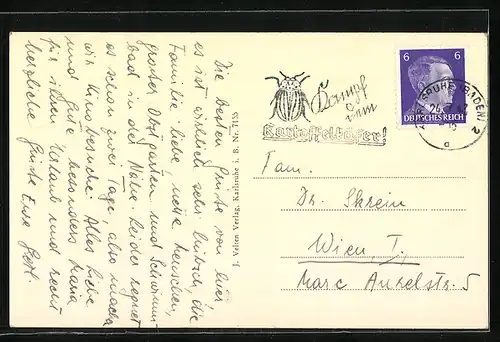 Die besten Grüße von hier
es ist wirklich sehr hübsch, die
Familie liebe, nette Menschen,
großer Obstgarten und Schwimm-
bad in der Nähe. Leider regnet
es schon zwei Tage, also machen
wir Kinobesuche. Alles Liebe
und Gute besonders Maria
für ihren Urlaub und recht
herzliche Grüße Eure
T. Velten Verlag, Karlsruhe i. B. Nr. 7135
Kampf
dem
Kartoffelkäfer!
6 6
DEUTSCHES REICH
KARLSRUHE (BADEN) 2
a
Fam.
Dr. Skrein
Wien, I.,
Marc Aurelstr. 5